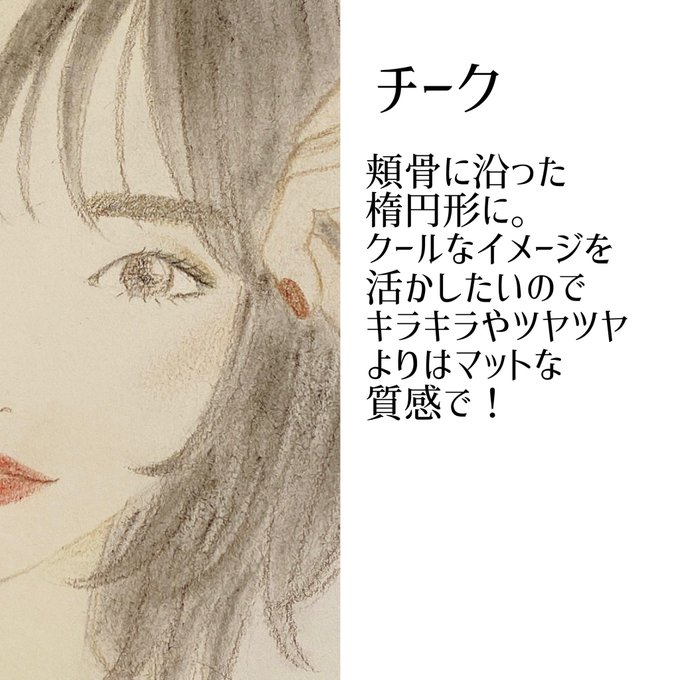 チーク
頬骨に沿った
楕円形に。
クールなイメージを
活かしたいので
キラキラやツヤツヤ
よりはマットな
質感で！